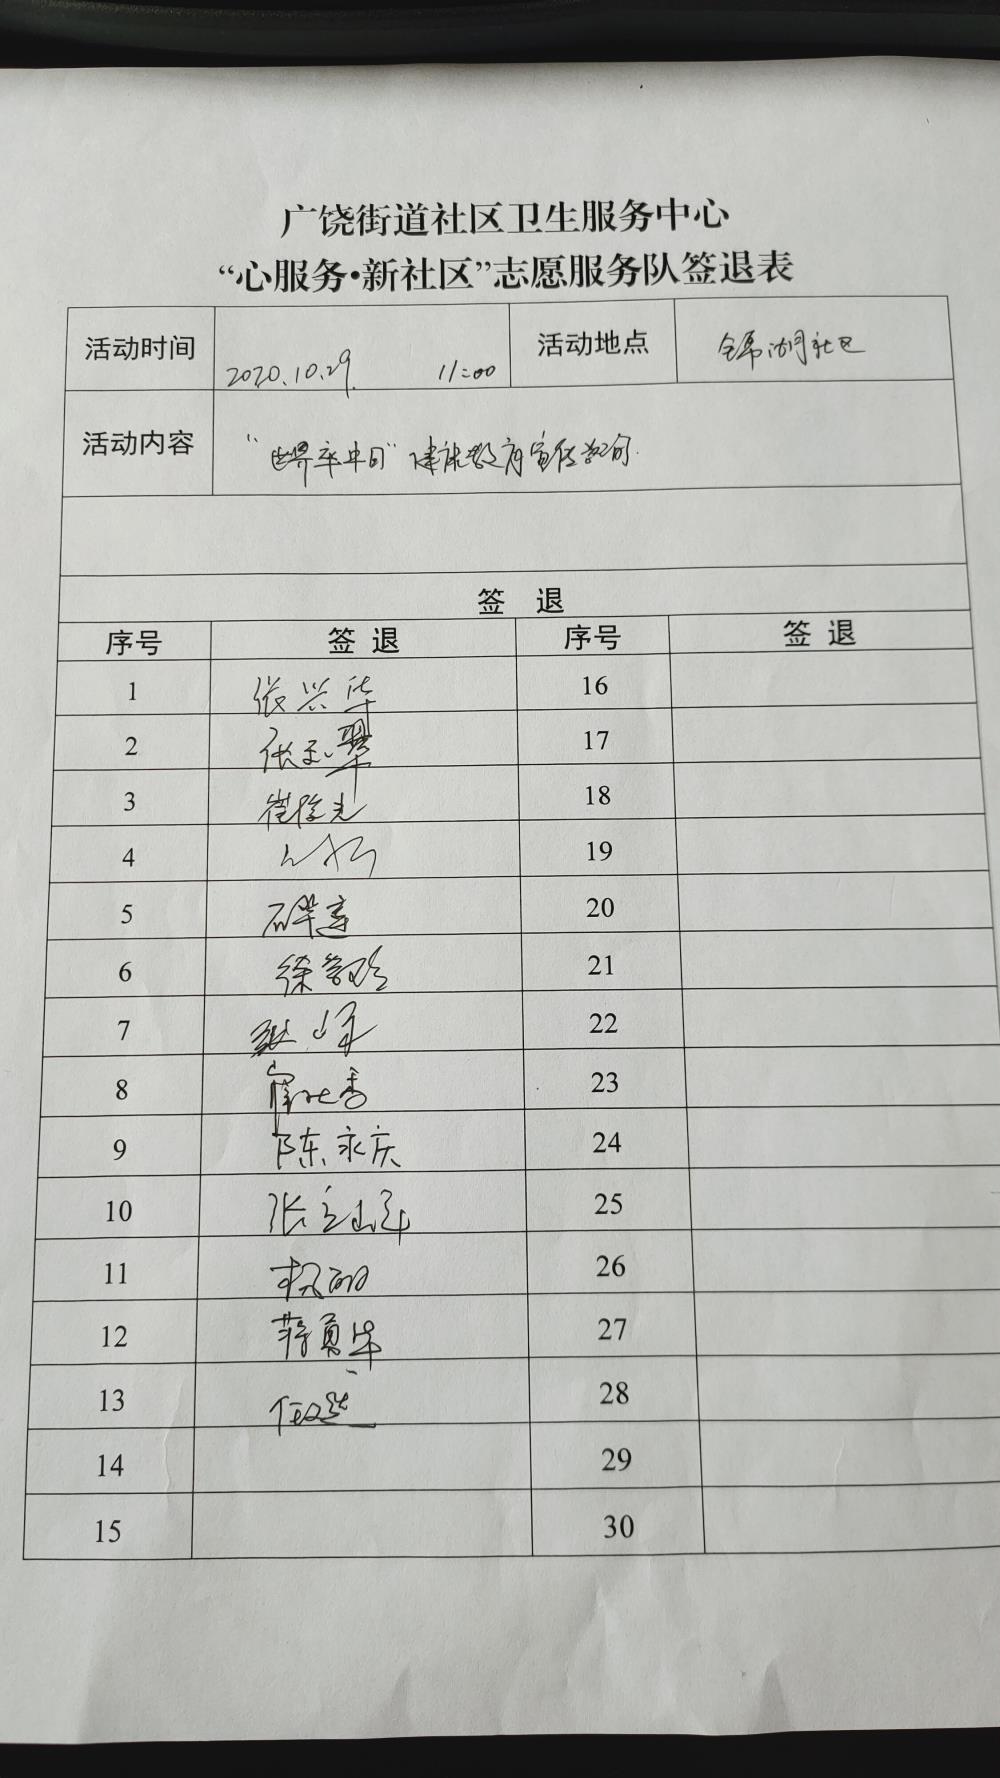 广饶街道社区卫生服务中心
“心服务•新社区”志愿服务队签退表
活动时间 2020.10.29. 11:00 活动地点 湖社区
活动内容 “世界卒中日”健康教育宣传
签 退
序号 签 退 序号 签 退
1 张兴华 16
2 张玉翠 17
3 崔 18
4 19
5 20
6 徐 21
7 峰 22
8 香 23
9 陈永庆 24
10 张立 25
11 26
12 蒋勇华 27
13 任 28
14 29
15 30